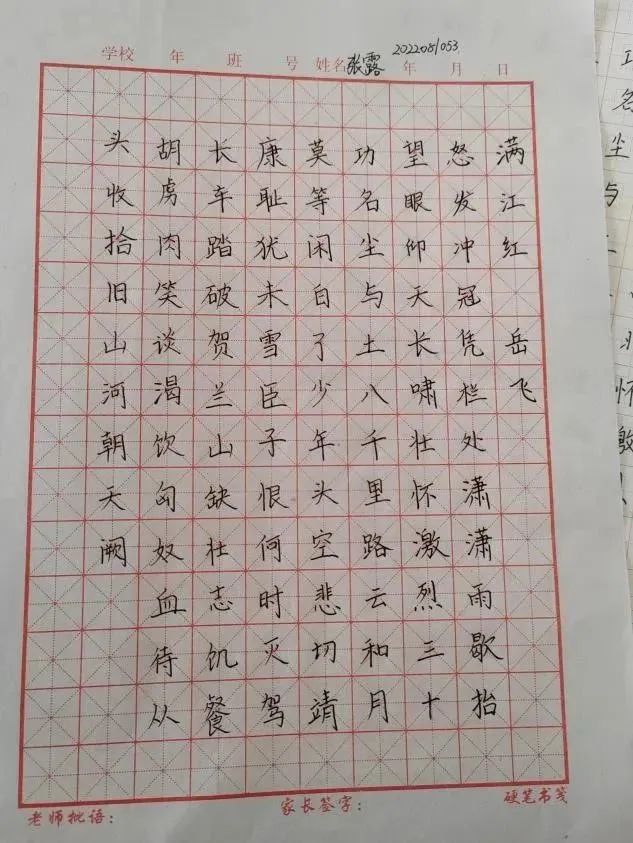 学校 年 班 号 姓名 张露 年 月 日
2022081053
满江红 岳飞
怒发冲冠凭栏处潇潇雨歇抬
望眼仰天长啸壮怀激烈三十
功名尘与土八千里路云和月
莫等闲白了少年头空悲切靖
康耻犹未雪臣子恨何时灭驾
长车踏破贺兰山缺壮志饥餐
胡虏肉笑谈渴饮匈奴血待从
头收拾旧山河朝天阙
老师批语：
家长签字：
硬笔书笺